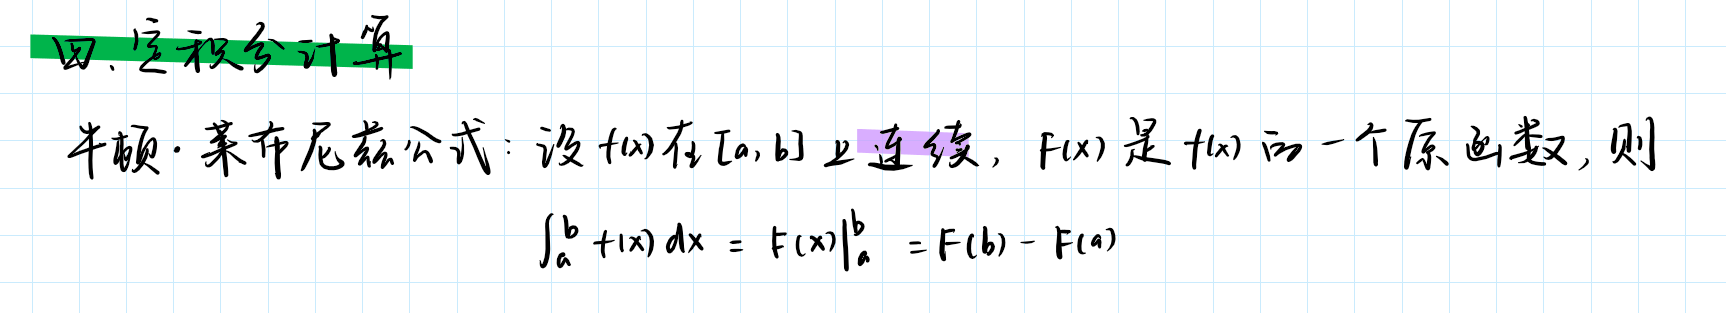 四、定积分计算
牛顿·莱布尼兹公式：设f(x)在[a,b]上连续，F(x)是f(x)的一个原函数，则
∫_a^b f(x)dx = F(x)|_a^b = F(b) - F(a)